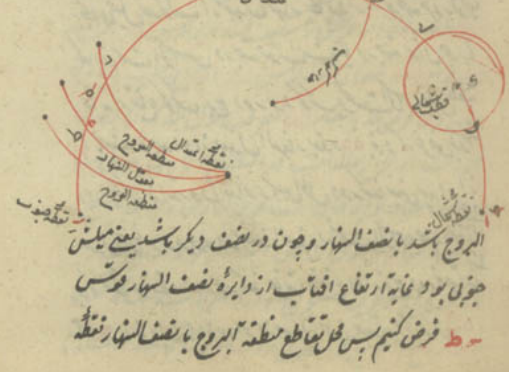 قطب شمالی
نقطه اعتدال
منطقه البروج
معدل النهار
منطقه البروج
نقطه جنوب
نقطه شمال
البروج باشد با نصف النهار و چون در نصف دیگر باشد یعنی میلش
جنوبی بود و غایة ارتفاع افتاب از دایرهٔ نصف النهار قوس
ط فرض کنیم پس محل تقاطع منطقه البروج با نصف النهار نقطهٔ